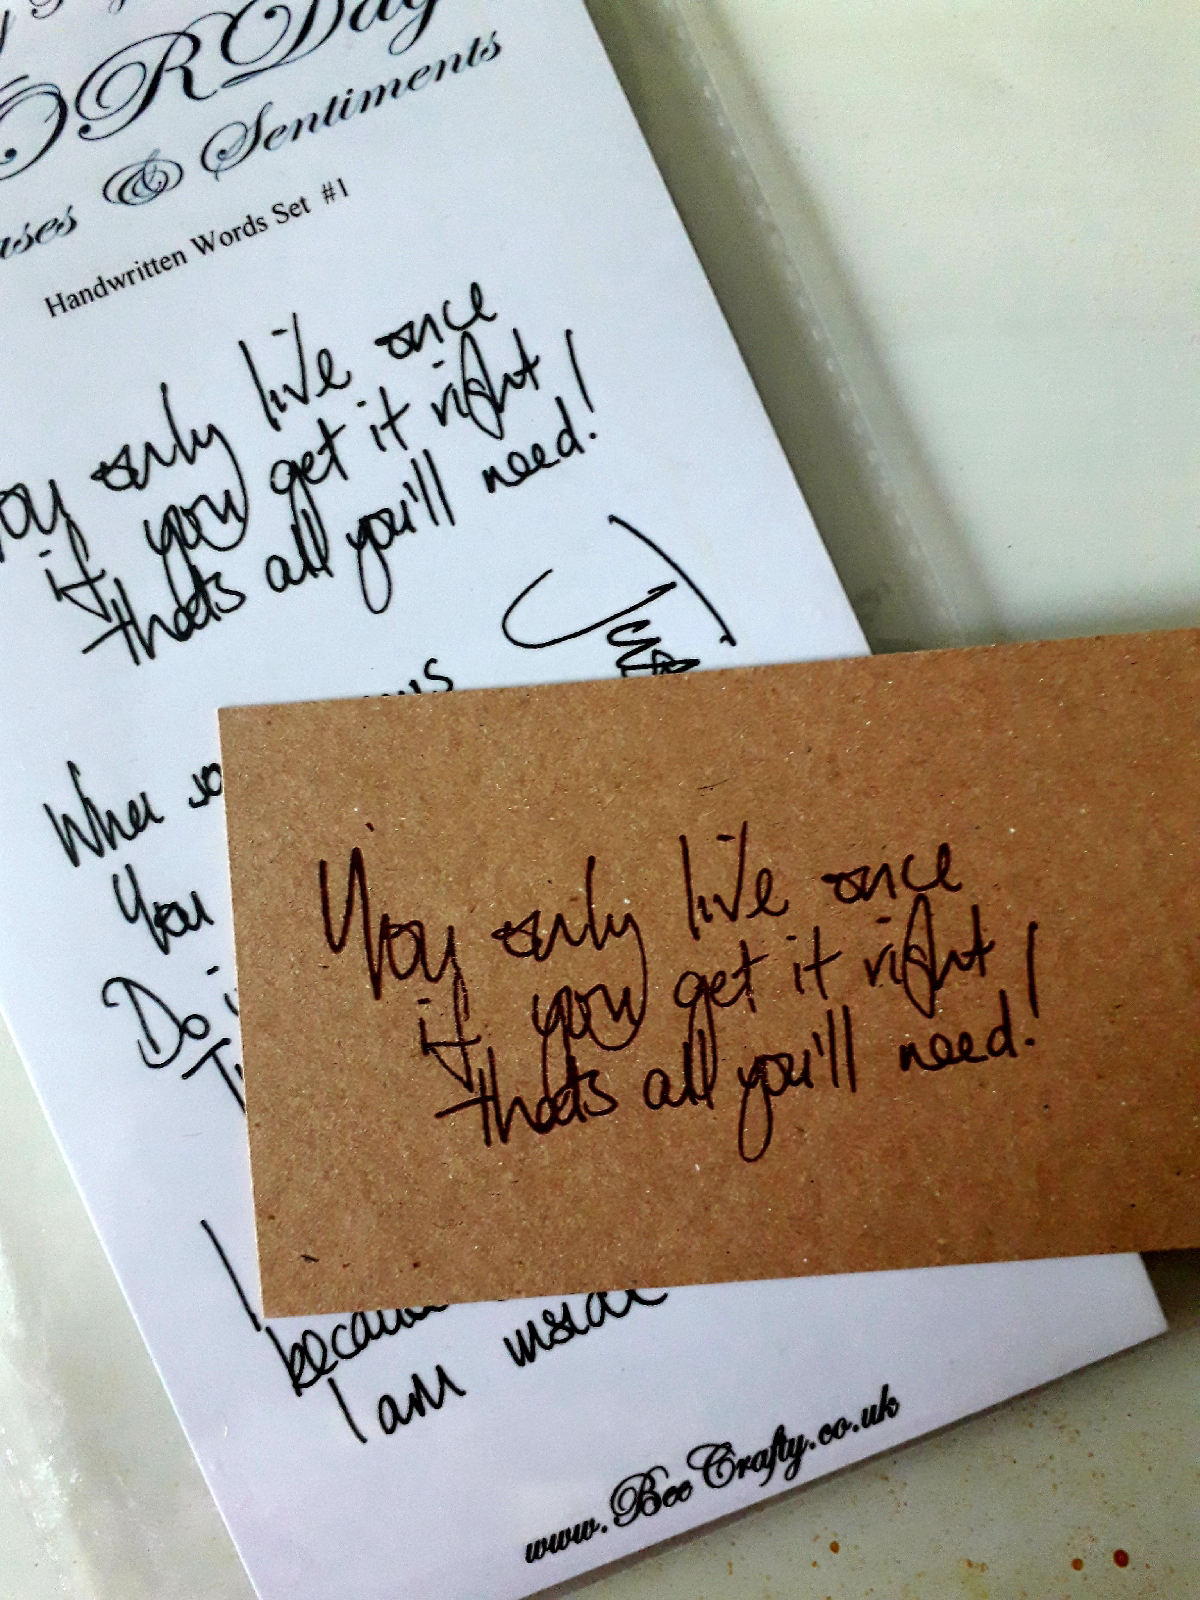 ORDay
& Sentiments
Handwritten Words Set #1
You only live once
if you get it right
thats all you'll need!
When so
You
Do i
I
because
I am inside
You only live once
if you get it right
thats all you'll need!
www.BeeCrafty.co.uk